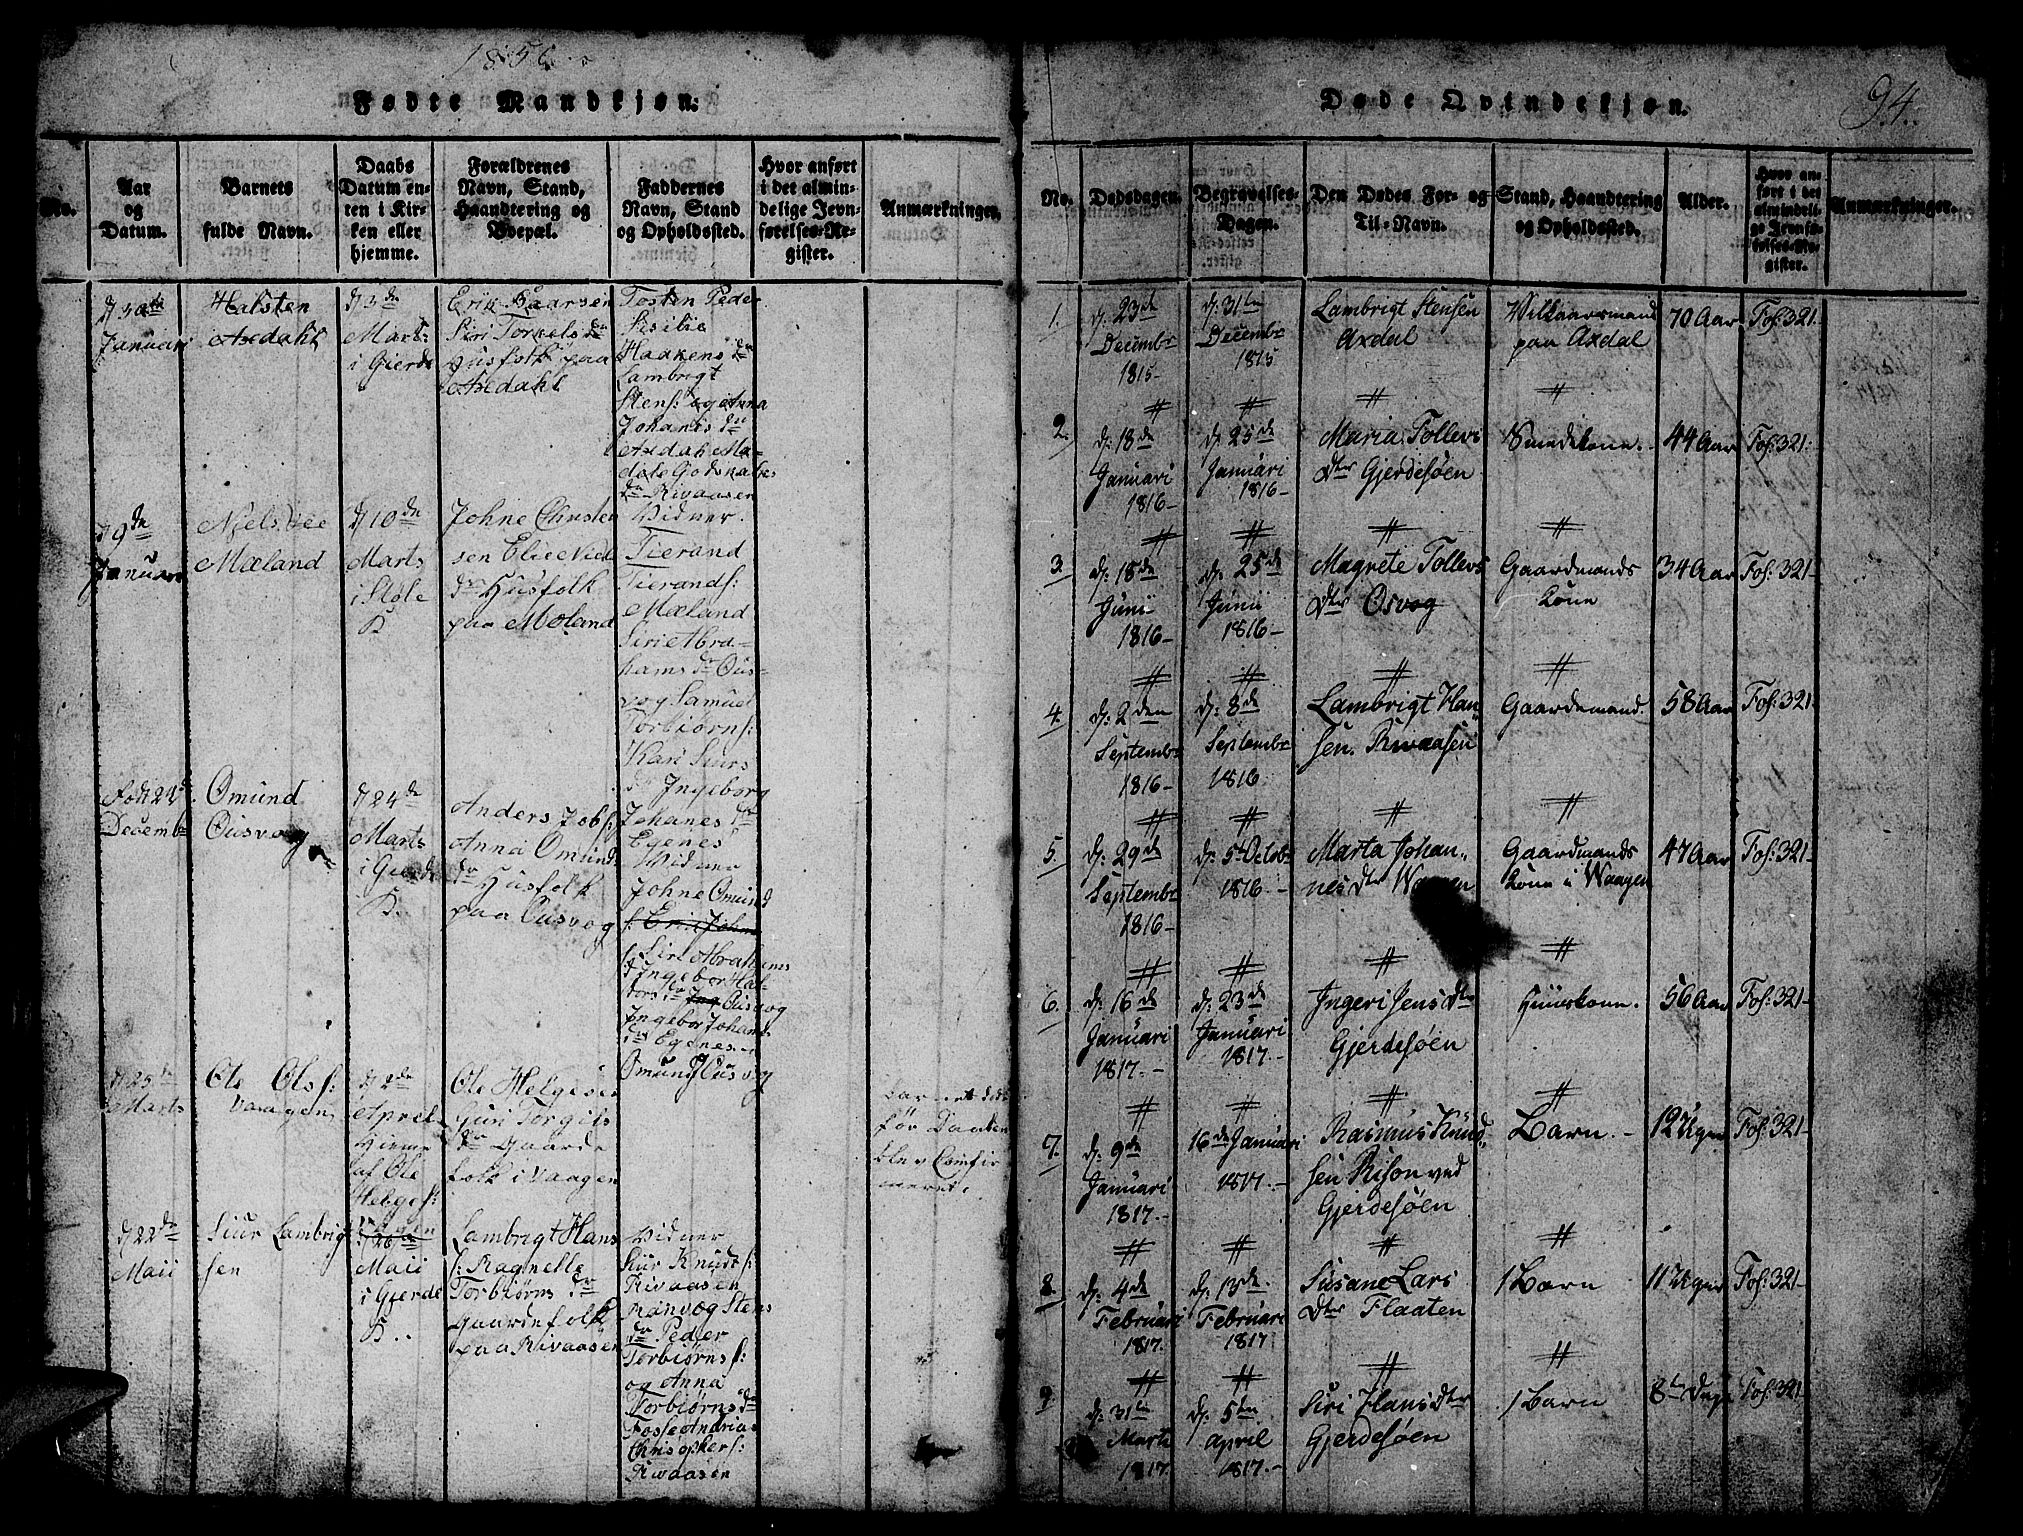 1856.
Fødte Mandkjøn.
No.
Aar
og
Datum.
Barnets
fulde Navn.
Daabs
Datum en-
ten i Kir-
ken eller
hjemme.
Forældrenes
Navn, Stand,
Haandtering og
Boepæl.
Faddernes
Navn, Stand
og Opholdssted.
Hvor anført
i det almin-
delige Jevn-
førelses-Re-
gister.
Anmærkninger.
d 30de
Januari
Halsten
Axedahl
d 3de
Marts
i Gierde
Erik Baarsen
Siri Torkels dr
Husfolk paa
Axedahl
Tosten Peder
Sisilie
Haakens dr
Lambrigt
Stens: og Anna
Johanes dr
Axedahl Ma-
dr Rivaasen
d 9de
Januari
Niels
Mæland
d 10de
Marts
i Støle
K
Johne Christen
sen Elie
dr Husfolk
paa Mæland
Vidner.
Tierand
Tierands:
Mæland
Siri Abra-
hams dr Ous-
vog Samuel
Torbiørns:
Kari Siurs
dr Ingeborg
Johanes dr
Egenes
Decembr
Omund
Ousvog
d 24de
Marts
i Gierde
K.
Anders Jobs:
Anna Omunds
dr Husfolk
paa Ousvog
Vidner
Johne Omund
s: Siri Abrahams
d Ingebor Hal-
tors dr Ousvog
Ingebor Johans
dr Egenes
Omund Ousvog
d 25de
Marts
Ole Ols:
Vaagen
d 2de
Aprel
Hieme
af Ole
Helges:
Vaagen
Ole Helgesen
Guri Torgils
dr Gaarde
folk i Vaagen
før Daaben
blev Comfir
meret.
d 22de
Maii
Siur Lambrigt
sen
d 26de
Maii
i Gjerde
K..
Lambrigt Hans
s: Ragnelle
Torbiørns dr
Gaardefolk
paa Rivaasen
Vidner
Siur Knuds:
Rivaasen
Ranvog Stens
dr Peder
Torbiørns:
og Anna
Torbiørns dr
Fosse Andrias
Christopher s:
Rivaasen
94.
Døde Qvindekjøn.
No.
Dødsdagen.
Begravelses-
Dagen.
Den Dødes For- og
Til-Navn.
Stand, Haandtering
og Opholdssted.
Alder.
Hvor an-
ført i det
almindeli-
ge Jevnfø-
relses-Re-
gister.
Anmærkninger.
1.
d: 23de
Decembr
1815-
d: 31te
Decembr
1815
Lambrigt Stensen
Axdal
Vilkaarsmand
paa Axdal
70 Aar
Fol: 321-
2.
d: 18de
Januari
1816-
d: 25de
Januari
1816-
Maria Tollevs
Dtr Gjerdesøen
Smedekone.
44 Aar
Fol: 321-
3.
d: 18de
Junii
1816-
d: 25de
Junii
1816-
Magrete Tollevs
Dtr Osvog
Gaardmands
Kone
34 Aar
Fol: 321-
4.
d: 2den
Septembr
1816-
d: 8de
Septembr
1816.
Lambrigt Han-
sen. Rivaasen
Gaardemand.
58 Aar
Fol: 321-
5.
d: 29de
Septembr
1816-
d: 5te Octobr
1816.-
Marta Johan-
nes Dtr Waagen
Gaardmands
Kone i Waagen
47 Aar
Fol: 321-
6.
d: 16de
Januari
1817.-
d: 23de
Januari
1817.-
Ingeri Jens Dtr
Gjerdesøen
Huuskone.
56 Aar
Fol: 321-
7.
d: 9de
Januari
1817.-
16de Januari
1817.-
Rasmus Knud-
sen Rison ved
Gjerdesøen
Barn.-
12 Uger
Fol: 321-
8.
d: 4de
Februari
1817.-
d: 13de
Februari
1817.
Susane Lars
Dtr Flaaten
1 Barn
11 Uger
Fol: 321-
9
d: 31te
Marti
1817
d: 5te
April
1817.-
Siri Hans Dtr
Gjerdesøen
1 Barn
8te Dage
Fol: 321-